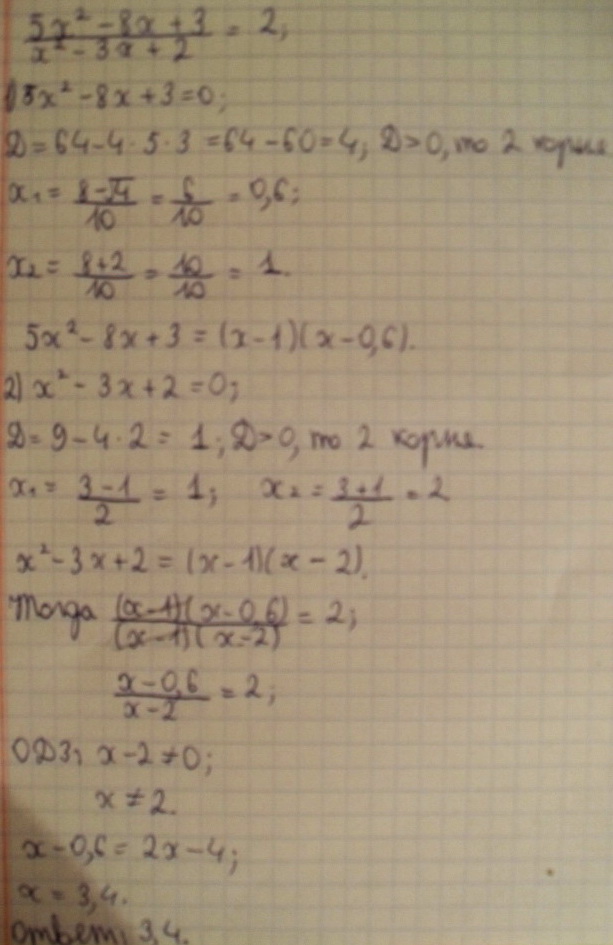 (5x² - 8x + 3)/(x² - 3x + 2) = 2;
1) 5x² - 8x + 3 = 0;
D = 64 - 4 · 5 · 3 = 64 - 60 = 4; D > 0, то 2 корня
x₁ = (8 - √4)/10 = 6/10 = 0,6;
x₂ = (8 + 2)/10 = 10/10 = 1.
5x² - 8x + 3 = (x - 1)(x - 0,6).
2) x² - 3x + 2 = 0;
D = 9 - 4 · 2 = 1; D > 0, то 2 корня.
x₁ = (3 - 1)/2 = 1; x₂ = (3 + 1)/2 = 2
x² - 3x + 2 = (x - 1)(x - 2).
Тогда ((x - 1)(x - 0,6))/((x - 1)(x - 2)) = 2;
(x - 0,6)/(x - 2) = 2;
ОДЗ: x - 2 ≠ 0;
x ≠ 2.
x - 0,6 = 2x - 4;
x = 3,4.
Ответ: 3,4.